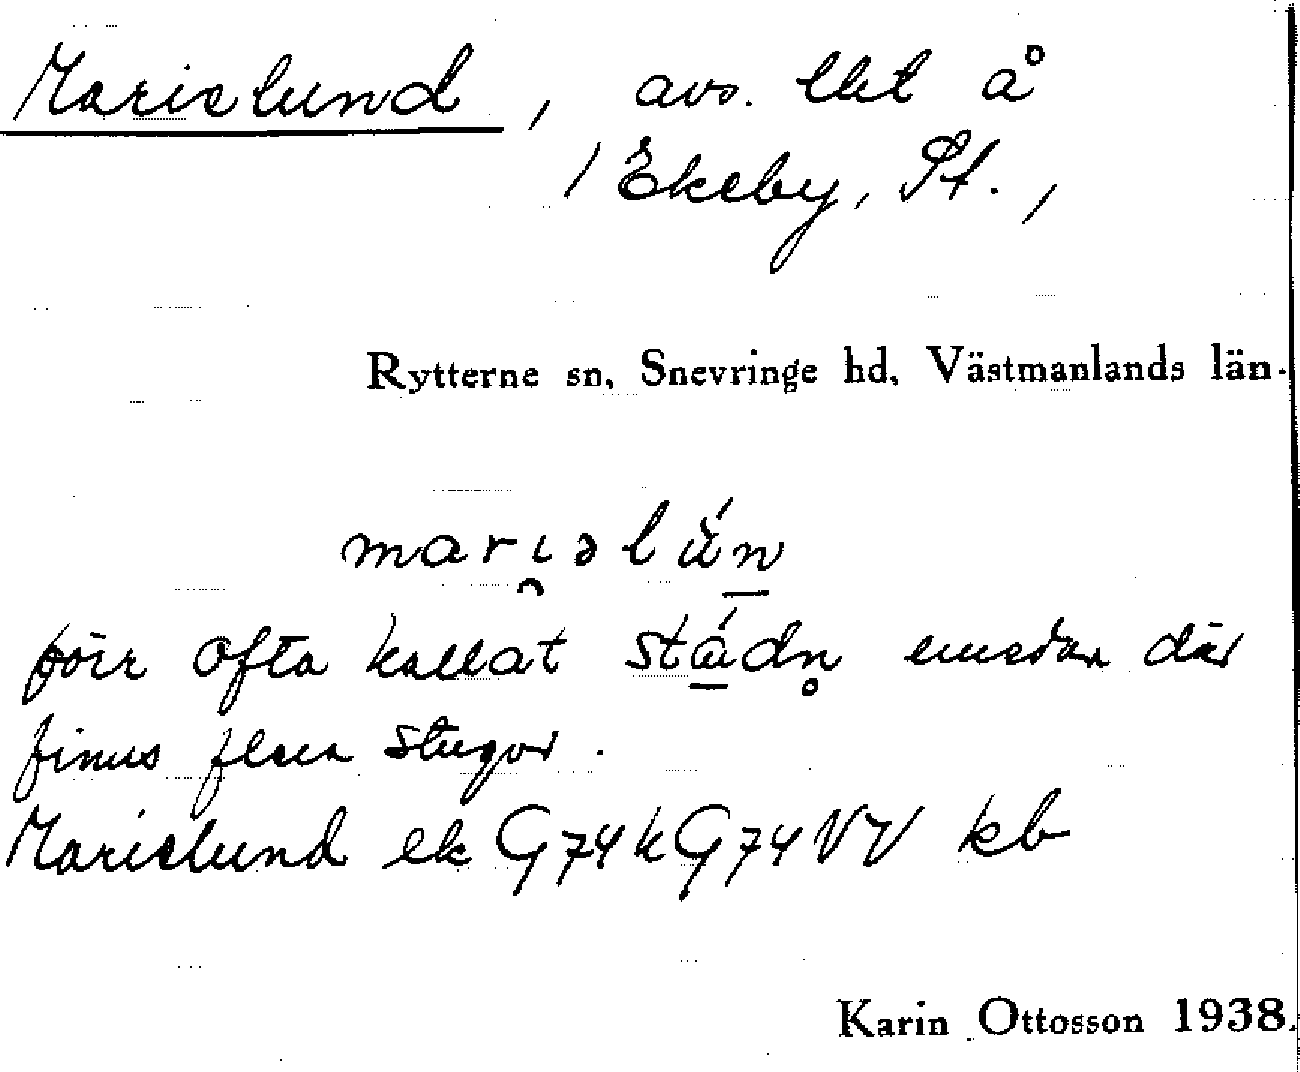 Marielund, avs. lht å
/ Ekeby, St.,
Rytterne sn, Snevringe hd, Västmanlands län.
mariəlún
förr ofta kallat stádn̥ emedan där
finns flera stugor.
Marielund ek G74k G74VV kb
Karin Ottosson 1938.